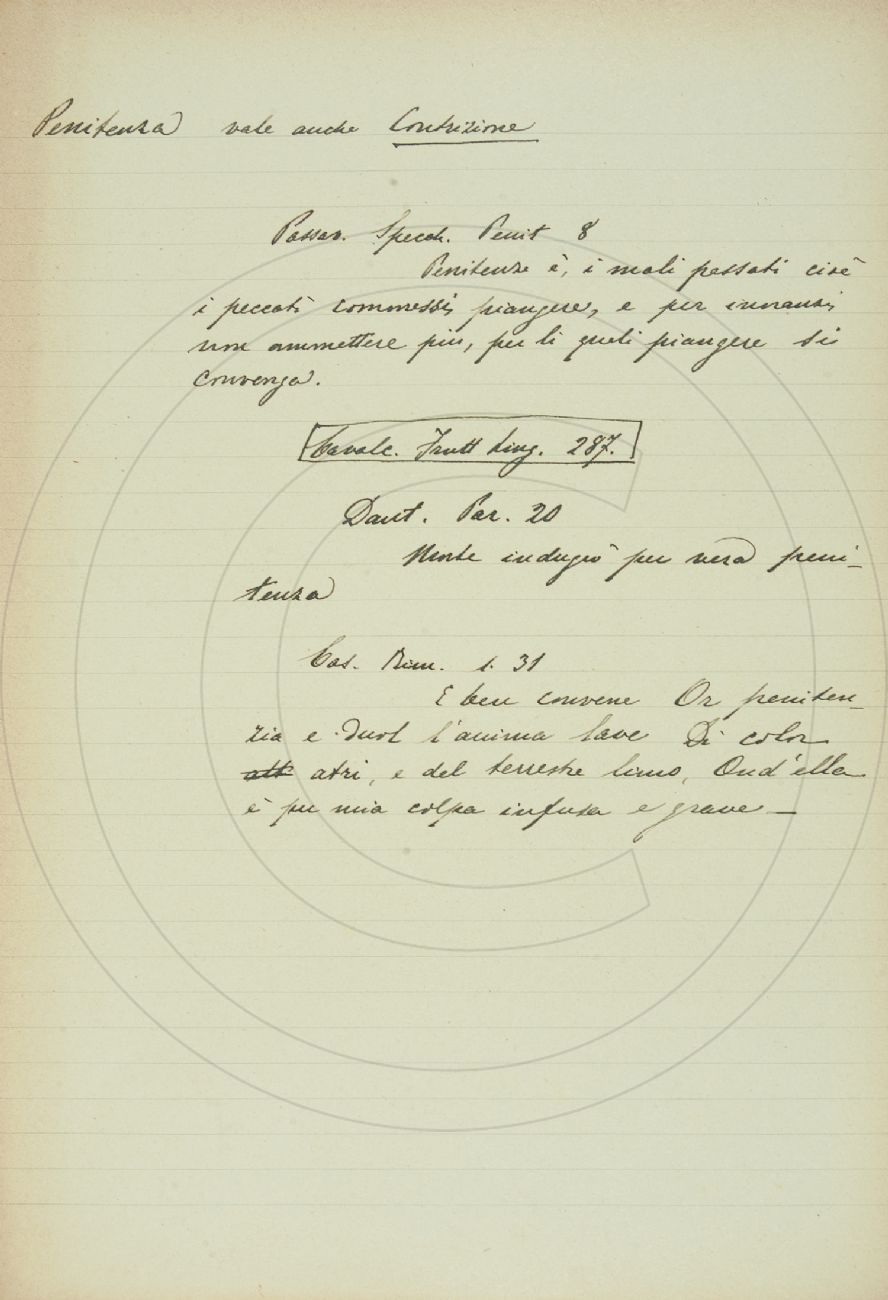 Penitenza vale anche Contrizione
Passav. Specch. Penit 8
Penitenza è, i mali passati cioè
i peccati commessi piangere, e per innanzi
non commettere più, per li quali piangere si
convenga.
Cavalc. Frutt ling. 287.
Dant. Par. 20
Morte indugiò per vera peni-
tenza
Cas. Rim. s. 31
E ben convene Or peniten-
zia e duol l'anima lave Di color
atri, e del terrestre limo, Ond'ella
è per mia colpa infusa e grave —